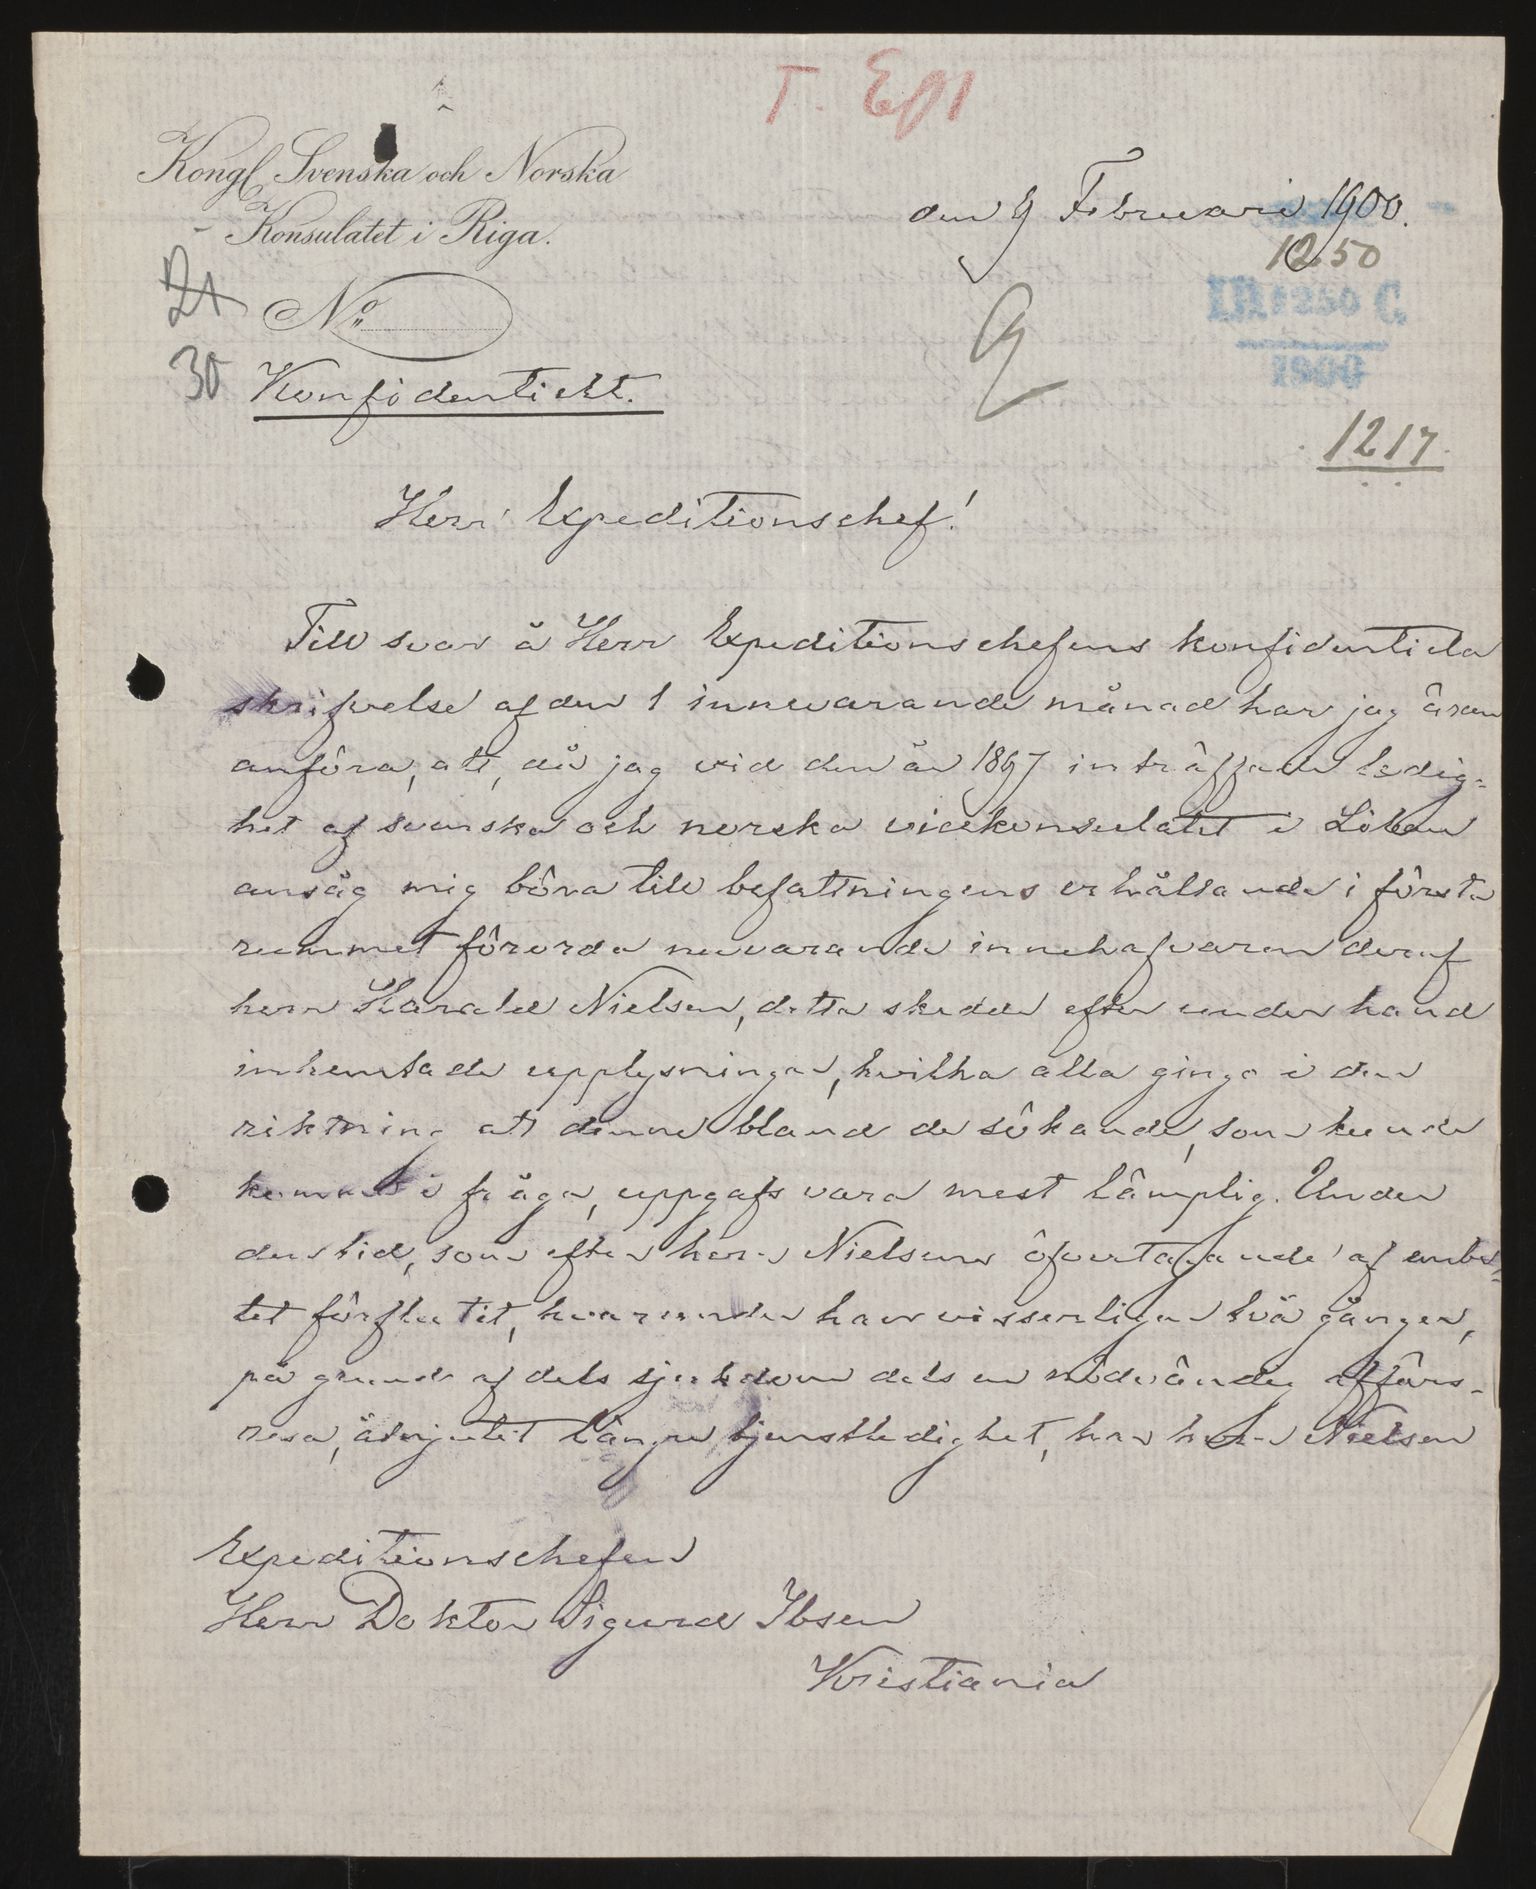 Kongl. Svenska och Norska
Konsulatet i Riga.
den 9 Februari 1900.
1250
1250 C
1900
21
No
30
Konfidentielt.
1217
Herr Expeditionschef!
Till svar å Herr Expeditionschefens konfidentiela
skrifvelse af den 1 innevarande månad har jag äran
anföra, att, då jag vid den år 1897 inträffade ledig-
het af svenska och norska vicekonsulatet i Libau
ansåg mig böra till befattningens erhållande i första
rummet förorda nuvarande innehafvaren deraf
herr Harald Nielsen, detta skedde efter under hand
inhemtade upplysningar, hvilka alla gingo i den
riktning att denne bland de sökande, som kunde
komma i fråga, uppgafs vara mest lämplig. Under
den tid, som efter herr Nielsens öfvertagande af embe-
tet förflutit, hvarunder han visserligen två gånger,
på grund af dels sjukdom dels en nödvändig affärs-
resa, åtnjutit längre tjenstledighet, har herr Nielsen
Expeditionschefen
Herr Doktor Sigurd Ibsen
Kristiania